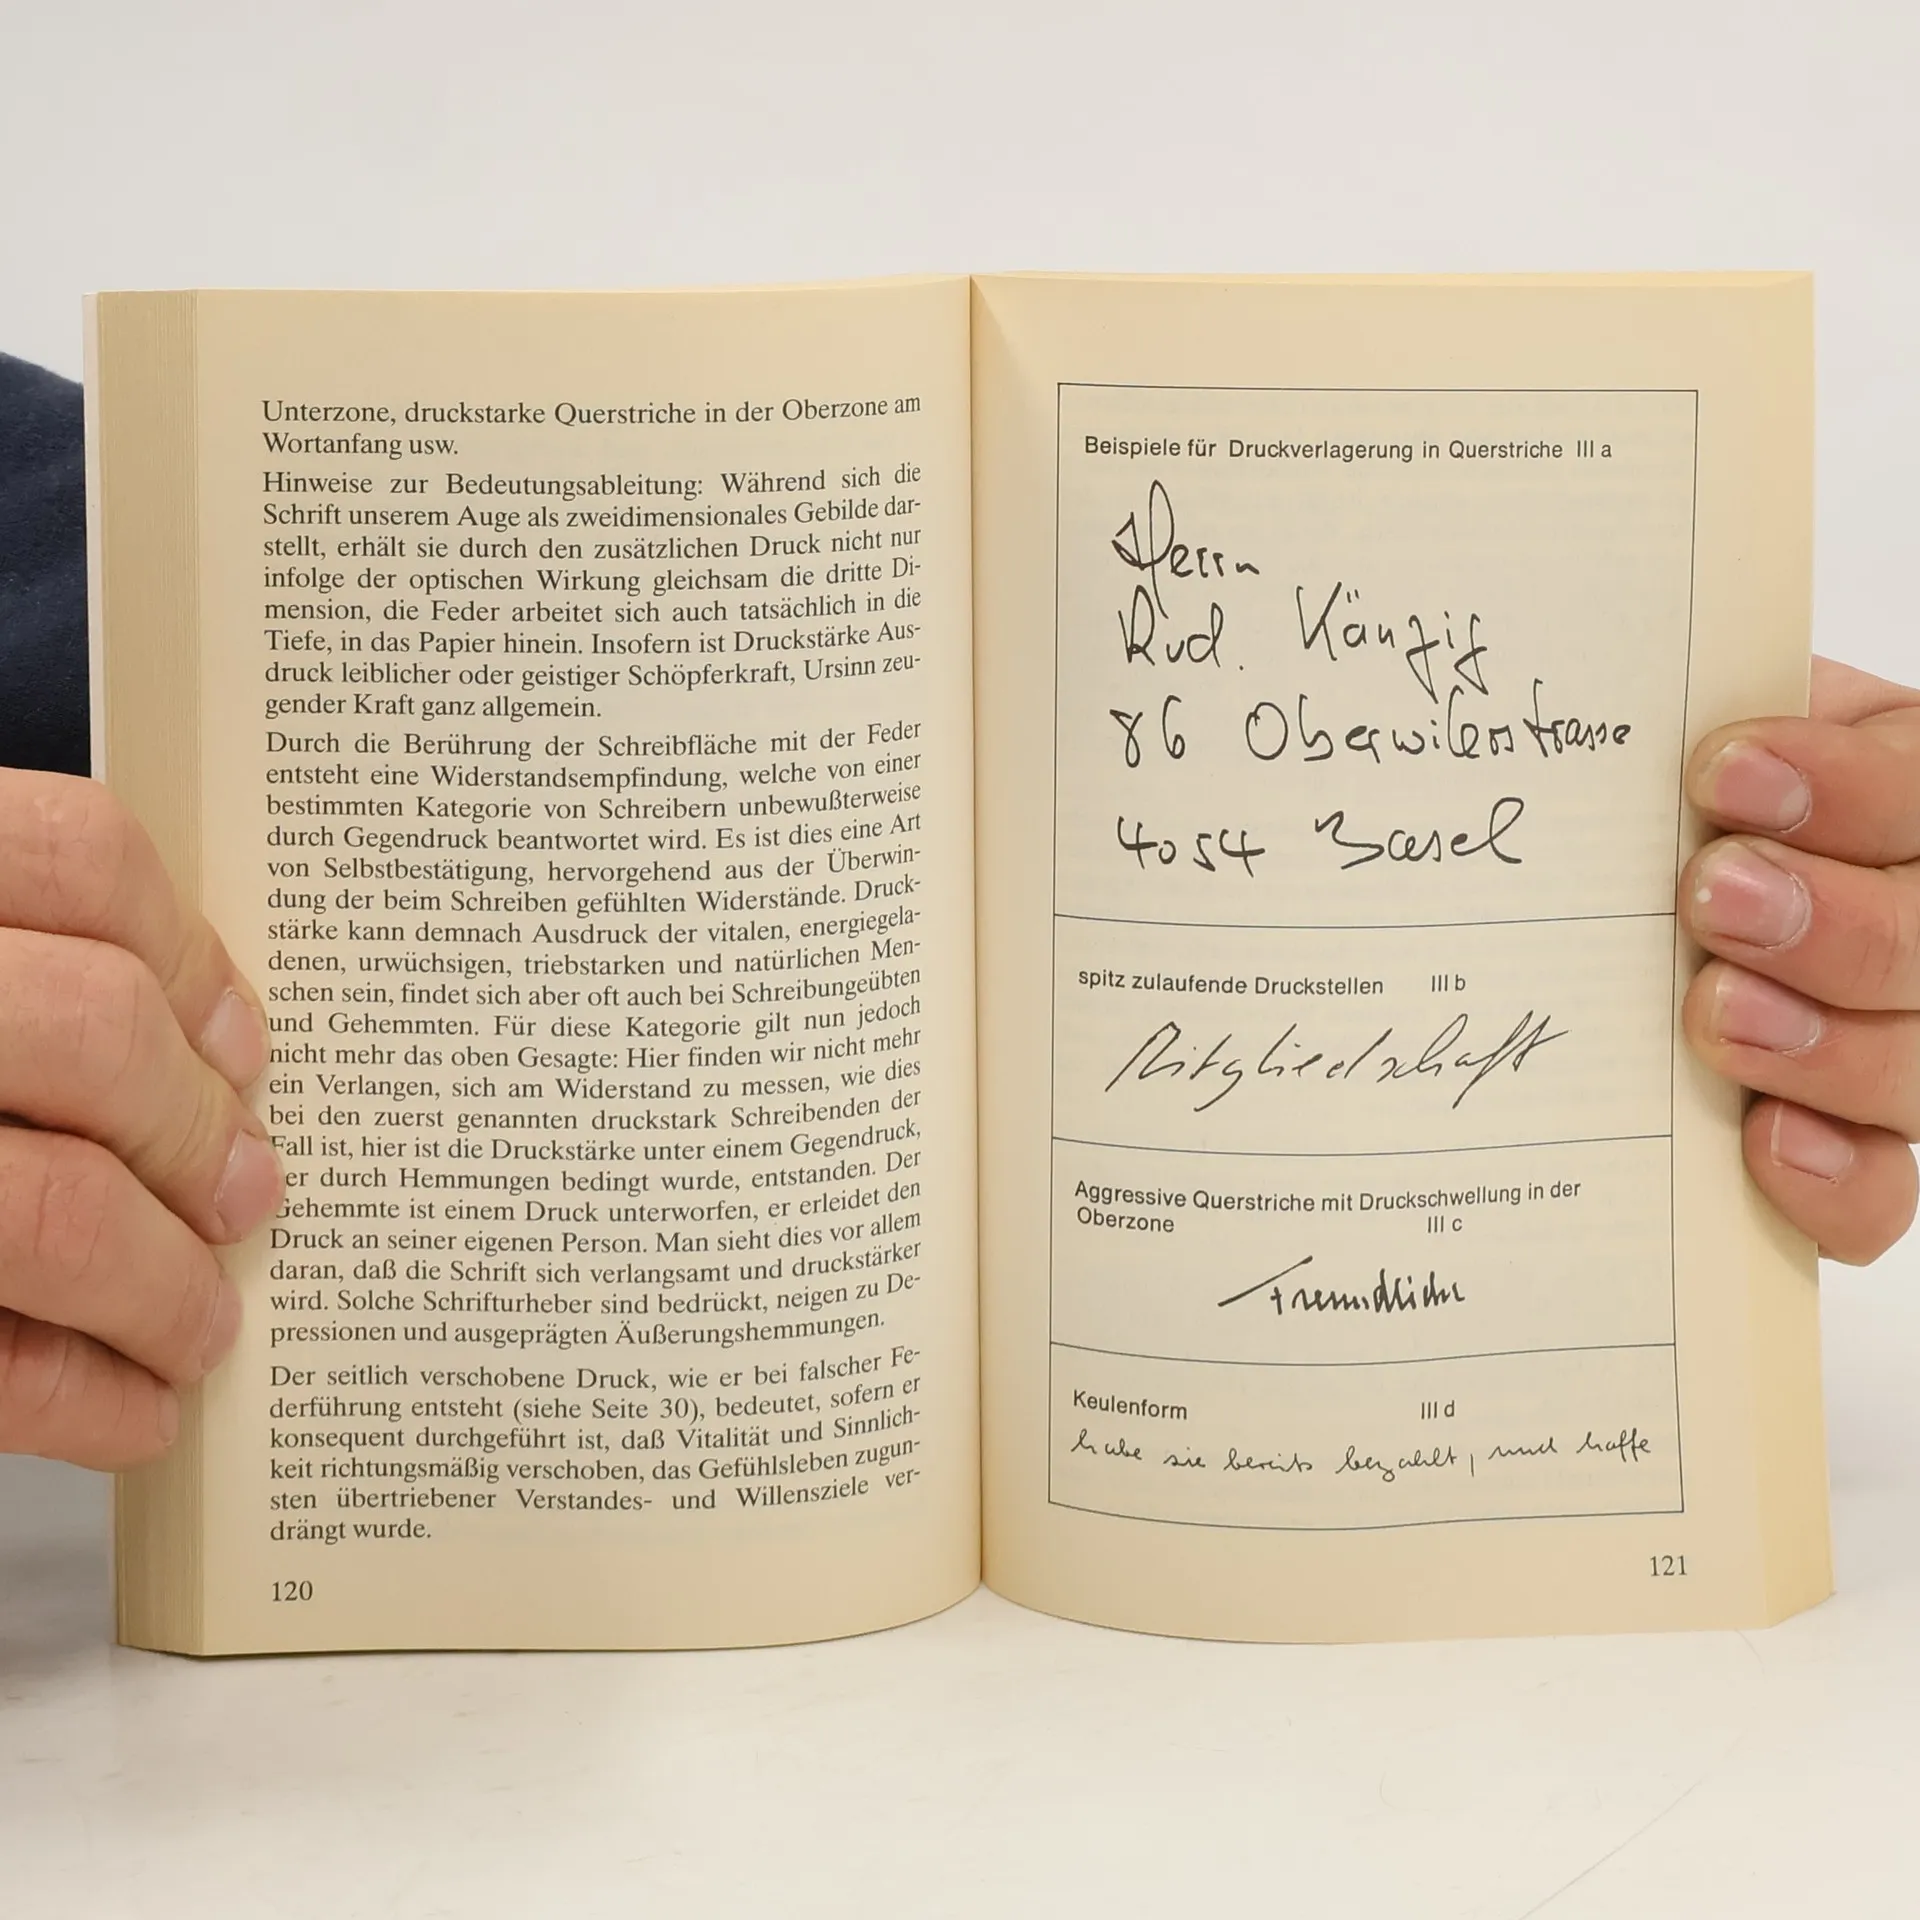 Unterzone, druckstarke Querstriche in der Oberzone am
Wortanfang usw.
Hinweise zur Bedeutungsableitung: Während sich die
Schrift unserem Auge als zweidimensionales Gebilde dar-
stellt, erhält sie durch den zusätzlichen Druck nicht nur
infolge der optischen Wirkung gleichsam die dritte Di-
mension, die Feder arbeitet sich auch tatsächlich in die
Tiefe, in das Papier hinein. Insofern ist Druckstärke Aus-
druck leiblicher oder geistiger Schöpferkraft, Ursinn zeu-
gender Kraft ganz allgemein.
Durch die Berührung der Schreibfläche mit der Feder
entsteht eine Widerstandsempfindung, welche von einer
bestimmten Kategorie von Schreibern unbewußterweise
durch Gegendruck beantwortet wird. Es ist dies eine Art
von Selbstbestätigung, hervorgehend aus der Überwin-
dung der beim Schreiben gefühlten Widerstände. Druck-
stärke kann demnach Ausdruck der vitalen, energiegela-
denen, urwüchsigen, triebstarken und natürlichen Men-
schen sein, findet sich aber oft auch bei Schreibungeübten
und Gehemmten. Für diese Kategorie gilt nun jedoch
nicht mehr das oben Gesagte: Hier finden wir nicht mehr
ein Verlangen, sich am Widerstand zu messen, wie dies
bei den zuerst genannten druckstark Schreibenden der
Fall ist, hier ist die Druckstärke unter einem Gegendruck,
er durch Hemmungen bedingt wurde, entstanden. Der
Gehemmte ist einem Druck unterworfen, er erleidet den
Druck an seiner eigenen Person. Man sieht dies vor allem
daran, daß die Schrift sich verlangsamt und druckstärker
wird. Solche Schrifturheber sind bedrückt, neigen zu De-
pressionen und ausgeprägten Äußerungshemmungen.
Der seitlich verschobene Druck, wie er bei falscher Fe-
derführung entsteht (siehe Seite 30), bedeutet, sofern er
konsequent durchgeführt ist, daß Vitalität und Sinnlich-
keit richtungsmäßig verschoben, das Gefühlsleben zugun-
sten übertriebener Verstandes- und Willensziele ver-
drängt wurde.
120
Beispiele für Druckverlagerung in Querstriche III a
Herrn
Rud. Känzig
86 Oberwilerstrasse
4054 Basel
spitz zulaufende Druckstellen III b
Mitgliedschaft
Aggressive Querstriche mit Druckschwellung in der
Oberzone III c
Freundliche
Keulenform III d
habe sie bereits bezahlt, und hoffe
121